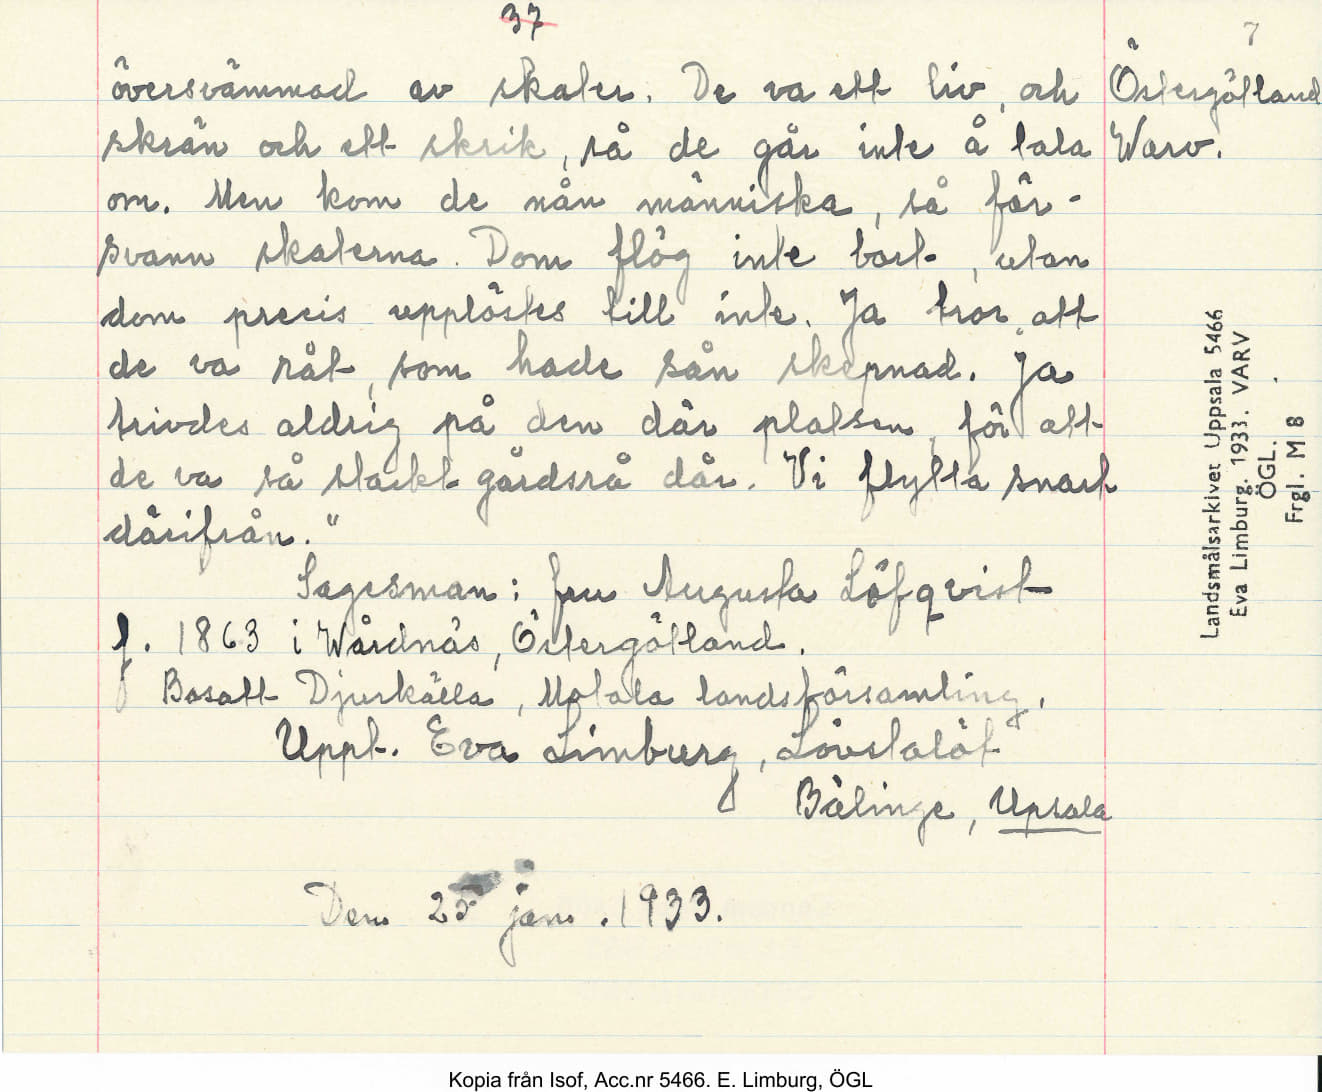 37
7
översvämmad av skater. De va ett liv, och
skrän och ett skrik, så de går inte å tala
om. Men kom de nån människa, så för-
svann skaterna. Dom flög inte bort, utan
dom precis upplöstes till inte. Ja tror att
de va nåt, som hade sån skepnad. Ja
trivdes aldrig på den där platsen, för att
de va så starkt gårdsrå där. Vi flytta snart
därifrån."
Sagesman: fru Augusta Löfqvist
f. 1863 i Wårdnäs, Östergötland.
Bosatt Djurkälla, Motala landsförsamling.
Uppt. Eva Limburg, Lövstalöt
Bälinge, Upsala
Den 25 jan. 1933.
Östergötland
Warv.
Landsmålsarkivet Uppsala 5466
Eva Limburg. 1933. VARV
ÖGL.
Frgl. M 8
Kopia från Isof, Acc.nr 5466. E. Limburg, ÖGL